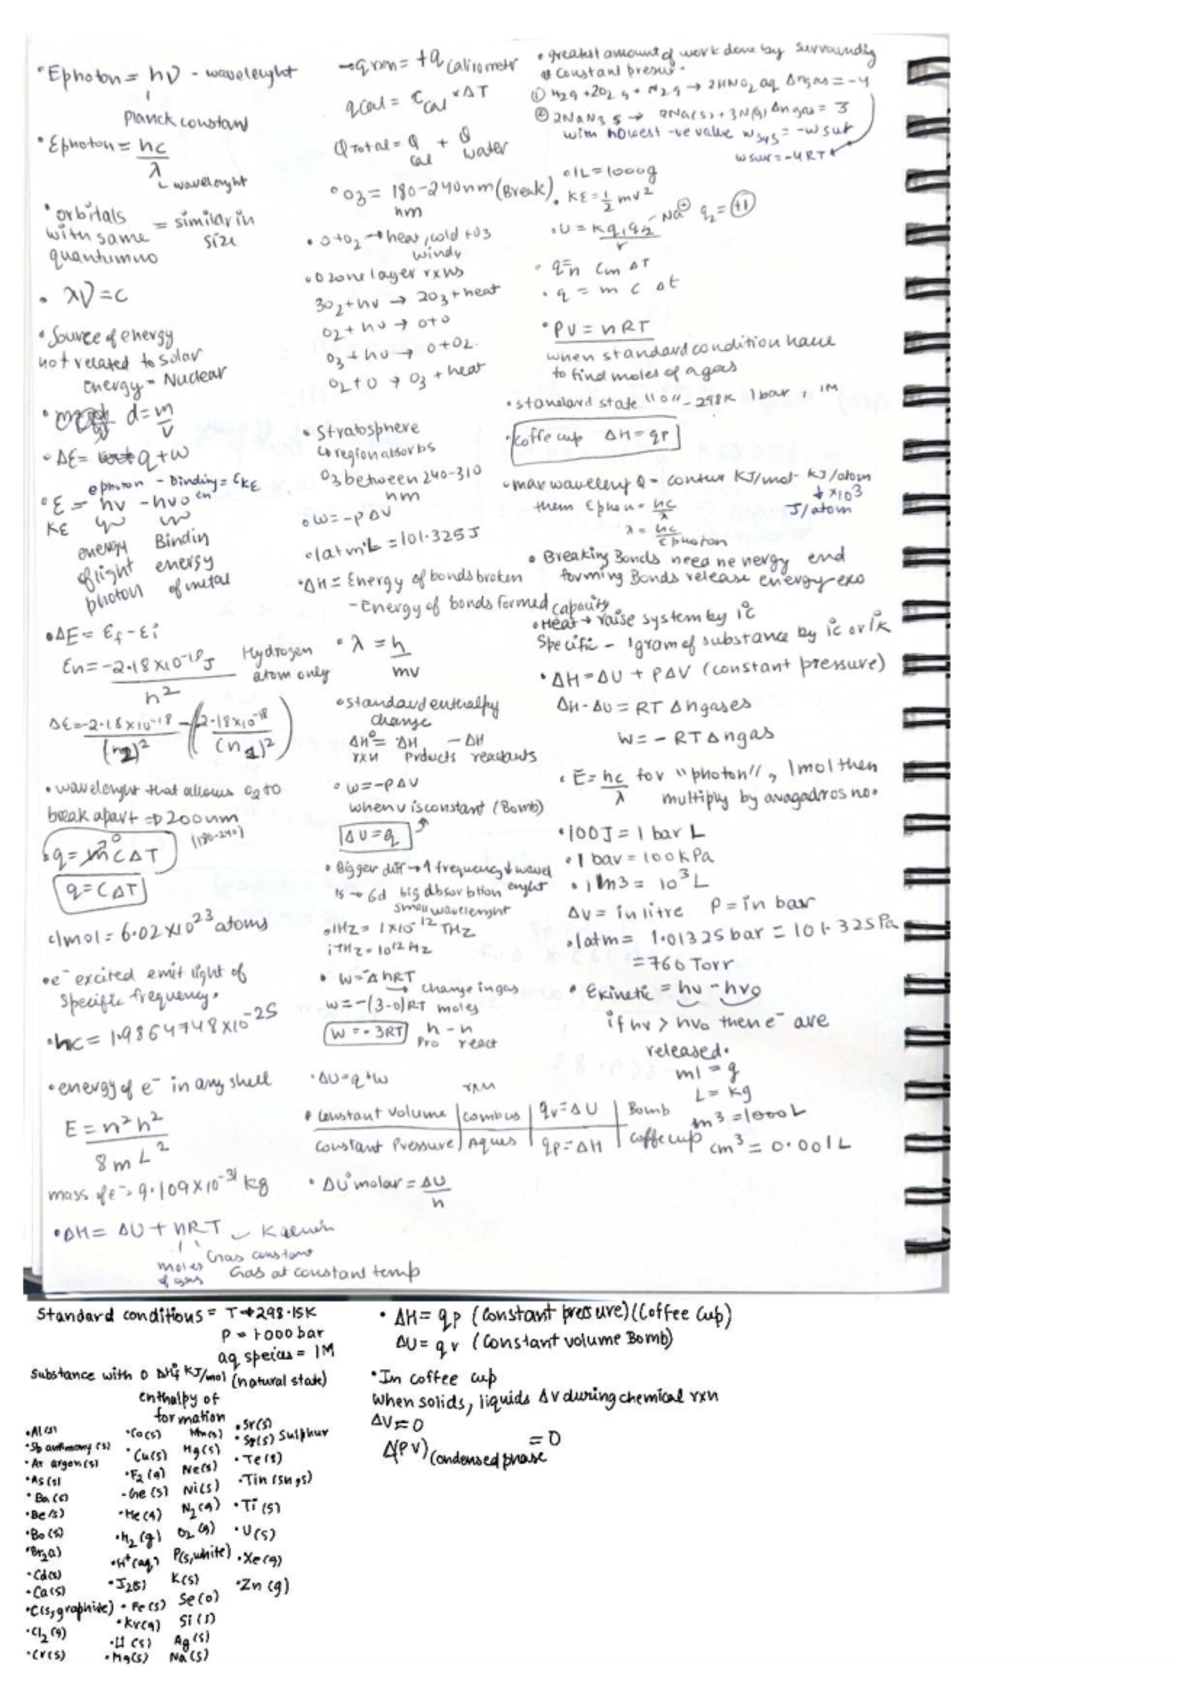 •Ephoton = hν - wavelenght
Planck constant
•Ephoton = hc
λ
wavelenght
•orbitals
with same = similar in
quantum no size
• λν = c
•Source of energy
not related to solar
energy = Nuclear
• d = m
v
• ΔE = q + w
ephoton - Binding = EKE
•E = hν - hν0
KE
energy Bindin
of light energy
photon of metal
•ΔE = Ef - Ei
En = -2.18 x 10^-18 J Hydrogen
n² atom only
ΔE = -2.18x10^-18 - (2.18x10^-18
(n2)² (n1)² )
• wavelenght that allows O2 to
break apart => 200nm
(180-240)
•q = m c ΔT
q = C ΔT
1mol = 6.02 x 10^23 atoms
•e⁻ excited emit light of
specific frequency.
•hc = 1.9864748x10^-25
•energy of e⁻ in any shell
E = n²h²
8mL²
mass of e⁻ = 9.109 x 10^-31 kg
•ΔH = ΔU + nRT - Kelvin
moles Gas constant
of gas Gas at constant temp
→qrxn = +q calirometr
qcal = Ccal x ΔT
QTotal = Q + Q
cal water
•O3 = 180-240nm (Break)
nm
• O+O2 → heat, cold + O3
windy
•Ozone layer rxns
3O2 + hν → 2O3 + heat
O2 + hν → O+O
O3 + hν → O + O2
O2 + O → O3 + heat
• Stratosphere
↳ region absorbs
O3 between 240-310
nm
• w = -PΔV
•1atm L = 101.325J
•ΔH = Energy of bonds broken
- Energy of bonds formed
• λ = h
mv
•Standard enthalpy
change
ΔH° = ΔH - ΔH
rxn Prducts reactants
• w = -PΔV
when v is constant (Bomb)
ΔU = q
• Bigger diff → ↑ frequency ↓ wavel
1s → 6d big absorbtion enght
small wavelenght
•1Hz = 1x10^-12 THz
1THz = 10^12 Hz
• w = -ΔnRT
→ change in gas
w = -(3-0)RT moles
W = -3RT n - n
Pro react
•ΔU = q + w rxn
• Constant volume | combus | qv = ΔU | Bomb
constant Pressure | Aques | qp = ΔH | coffe cup
• ΔU molar = ΔU
n
• greatest amount of work done by surrounding
@ constant presur.
① H2g + 2O2 g + N2 g → 2HNO2 aq Δngas = -4
② 2NaN3 s → 2Na(s) + 3N(g) Δngas = 3
with lowest -ve value wsys = -wsur
wsur = -4RT
•1L = 1000g
• KE = ½mv²
•U = Kq1q2 - Na⊕ q2 = (+1)
r
• q = n cm ΔT
• q = m c Δt
•PV = nRT
when standard condition have
to find moles of a gas
•standard state "0" - 298K 1bar, 1M
•Coffe cup ΔH = qp
•max wavelengt Q - contur KJ/mol - KJ/atom
↓ x10³
J/atom
them Ephon = hc
λ
λ = hc
Ephoton
• Breaking Bonds need energy end
forming Bonds release energy exo
capacity
•Heat → raise system by 1°C
Specific - 1gram of substance by 1°C or 1K
• ΔH = ΔU + PΔV (constant pressure)
ΔH - ΔU = RT Δngases
W = -RTΔngas
• E = hc for "photon", 1mol then
λ multiply by avagadros no.
•100J = 1 bar L
•1 bar = 100kPa
•1m3 = 10³L
ΔV = in litre P = in bar
•1atm = 1.01325bar = 101.325Pa
= 760 Torr
• Ekinetic = hν - hν0
if hν > hν0 then e⁻ are
released.
ml = g
L = kg
m³ = 1000L
cm³ = 0.001L
Standard conditions = T→298.15K
P = 1.000 bar
aq speies = 1M
Substance with 0 ΔHf KJ/mol (natural state)
enthalpy of
formation
•Al(s)
•Sb antimony (s)
•Ar argon(s)
•As(s)
•Ba(s)
•Be(s)
•Bo(s)
•Br2(l)
•Cd(s)
•Ca(s)
•C(s, graphite)
•Cl2(g)
•Cr(s)
•Co(s)
•Cu(s)
•F2(g)
•Ge(s)
•He(g)
•H2(g)
•H+(aq)
•I2(s)
•Fe(s)
•Kr(g)
•Li(s)
•Mg(s)
Mn(s)
Hg(s)
Ne(s)
Ni(s)
N2(g)
O2(g)
P(s, white)
K(s)
Se(0)
Si(s)
Ag(s)
Na(s)
•Sr(s)
•S8(s) Sulphur
•Te(s)
•Tin(sn,s)
•Ti(s)
•U(s)
•Xe(g)
•Zn(g)
• ΔH = qp (Constant pressure)(Coffee Cup)
ΔU = qv (Constant volume Bomb)
•In coffee cup
when solids, liquids Δv during chemical rxn
ΔV = 0
Δ(PV)condensed phase = 0